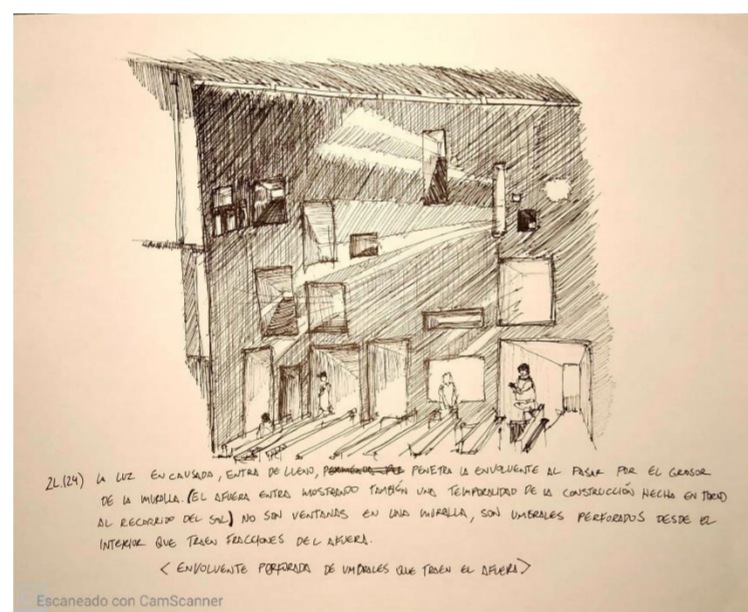 2L.(24) LA LUZ ENCAUSADA, ENTRA DE LLENO, PENETRA LA ENVOLVENTE AL PASAR POR EL GROSOR
DE LA MURALLA. (EL AFUERA ENTRA MOSTRANDO TAMBIÉN UNA TEMPORALIDAD DE LA CONSTRUCCIÓN HECHA EN TORNO
AL RECORRIDO DEL SOL) NO SON VENTANAS EN UNA MURALLA, SON UMBRALES PERFORADOS DESDE EL
INTERIOR QUE TRAEN FRACCIONES DEL AFUERA.
< ENVOLVENTE PERFORADA DE UMBRALES QUE TRAEN EL AFUERA >
Escaneado con CamScanner